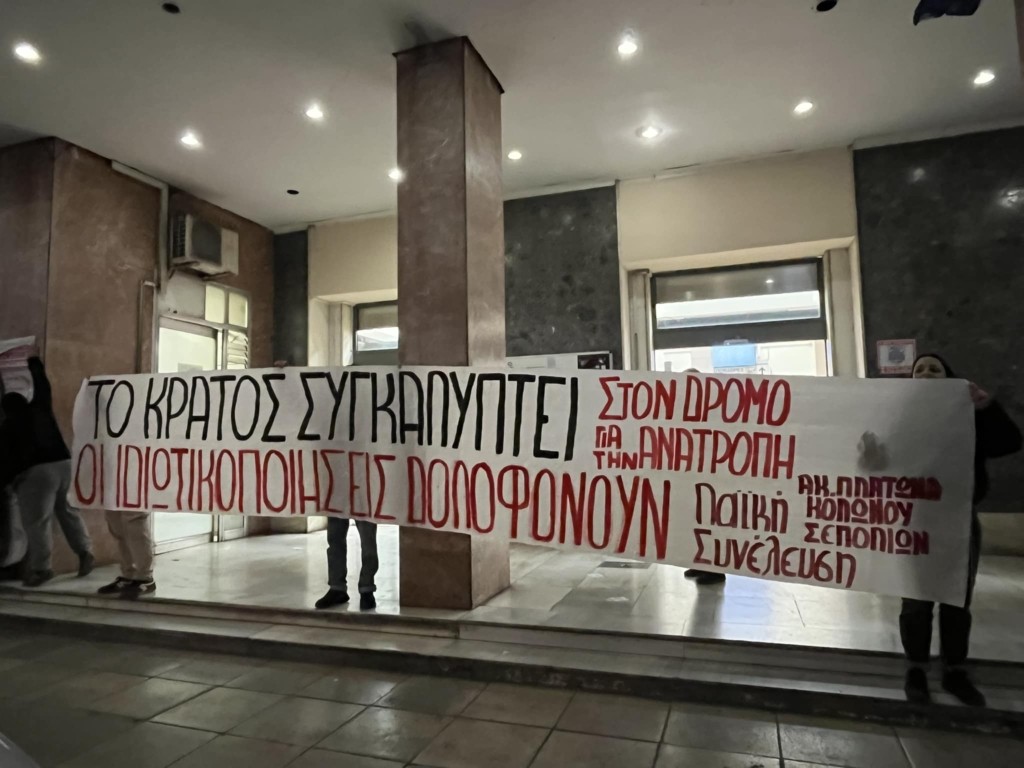 ΤΟ ΚΡΑΤΟΣ ΣΥΓΚΑΛΥΠΤΕΙ
ΟΙ ΙΔΙΩΤΙΚΟΠΟΙΗΣΕΙΣ ΔΟΛΟΦΟΝΟΥΝ
ΣΤΟΝ ΔΡΟΜΟ
ΓΙΑ ΤΗΝ ΑΝΑΤΡΟΠΗ
Λαϊκή Συνέλευση
ΑΚ. ΠΛΑΤΩΝΑ
ΚΟΛΩΝΟΥ
ΣΕΠΟΛΙΩΝ